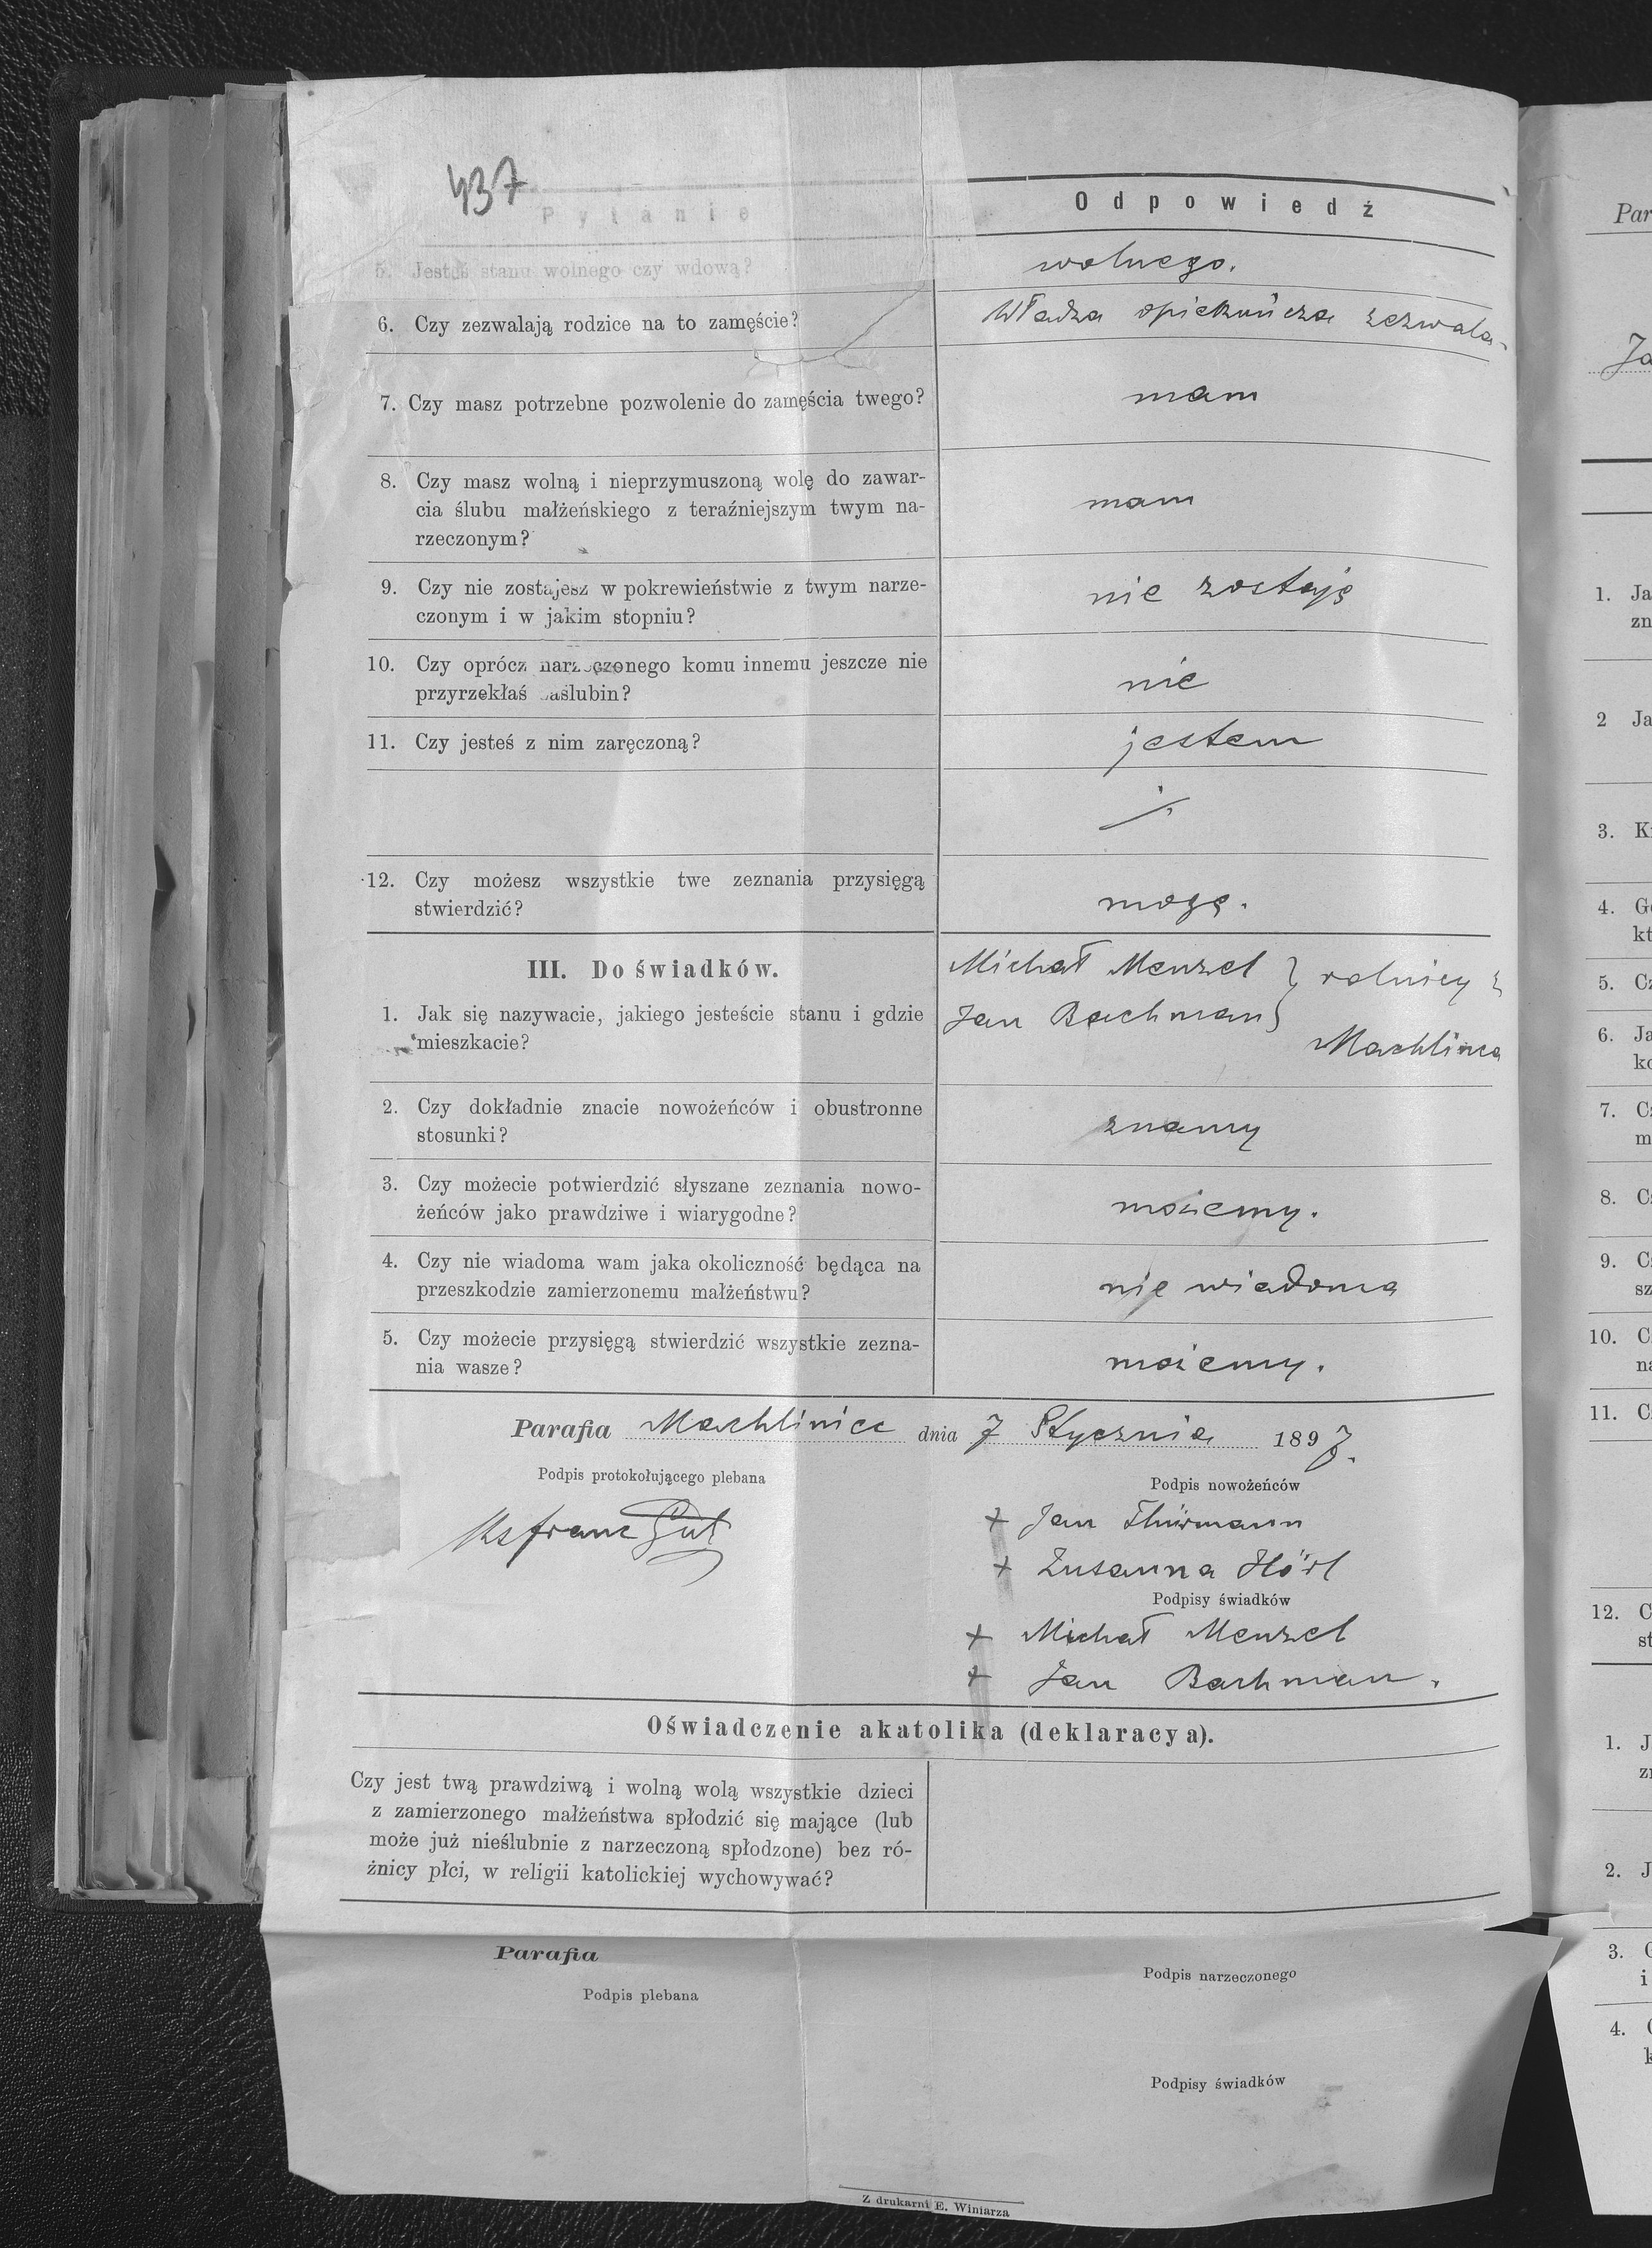 437
Pytanie
Odpowiedź
5. Jesteś stanu wolnego czy wdową?
wolnego.
6. Czy zezwalają rodzice na to zamęście?
Władza opiekuńcza zezwala
7. Czy masz potrzebne pozwolenie do zamęścia twego?
mam
8. Czy masz wolną i nieprzymuszoną wolę do zawar-
cia ślubu małżeńskiego z teraźniejszym twym na-
rzeczonym?
mam
9. Czy nie zostajesz w pokrewieństwie z twym narze-
czonym i w jakim stopniu?
nie zostaję
10. Czy oprócz narzeczonego komu innemu jeszcze nie
przyrzekłaś zaślubin?
nie
11. Czy jesteś z nim zaręczoną?
jestem
12. Czy możesz wszystkie twe zeznania przysięgą
stwierdzić?
mogę.
III. Do świadków.
1. Jak się nazywacie, jakiego jesteście stanu i gdzie
mieszkacie?
Michał Menzel } rolnicy z
Jan Bachman
Machlińca
2. Czy dokładnie znacie nowożeńców i obustronne
stosunki?
znamy
3. Czy możecie potwierdzić słyszane zeznania nowo-
żeńców jako prawdziwe i wiarygodne?
możemy.
4. Czy nie wiadoma wam jaka okoliczność będąca na
przeszkodzie zamierzonemu małżeństwu?
nie wiadoma
5. Czy możecie przysięgą stwierdzić wszystkie zezna-
nia wasze?
możemy.
Parafia Machliniec dnia 7 Stycznia 1897.
Podpis protokołującego plebana
Podpis nowożeńców
Ks franc Gut
+ Jan Thürmann
+ Zusanna Hörl
Podpisy świadków
+ Michał Menzel
+ Jan Bachman.
Oświadczenie akatolika (deklaracya).
Czy jest twą prawdziwą i wolną wolą wszystkie dzieci
z zamierzonego małżeństwa spłodzić się mające (lub
może już nieślubnie z narzeczoną spłodzone) bez ró-
żnicy płci, w religii katolickiej wychowywać?
Parafia
Podpis plebana
Podpis narzeczonego
Podpisy świadków
Z drukarni E. Winiarza